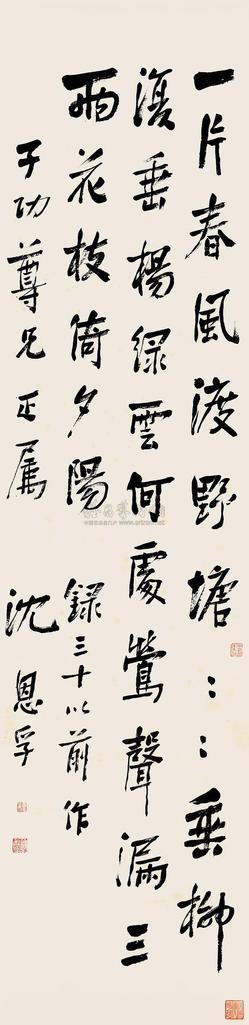 一片春風渡野塘〻〻垂柳
復垂楊綠雲何處鶯聲漏三
兩花枝倚夕陽 錄三十以前作
子功尊兄正屬 沈恩孚